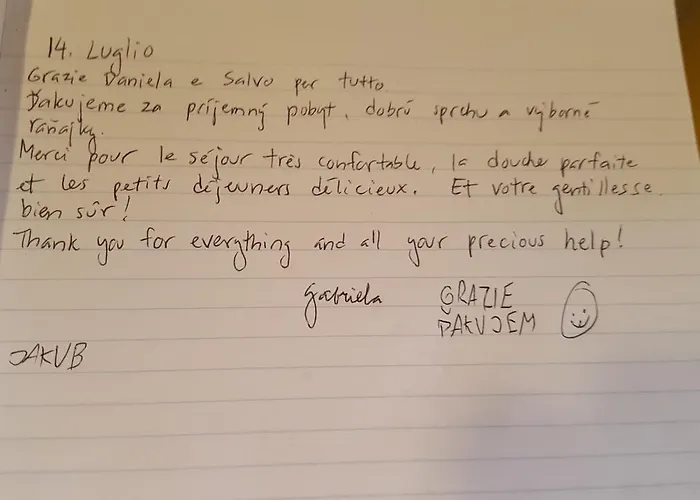 14. Luglio
Grazie Daniela e Salvo per tutto
Ďakujeme za príjemný pobyt, dobrú sprchu a výborné
raňajky.
Merci pour le séjour très confortable, la douche parfaite
et les petits déjeuners délicieux. Et votre gentillesse
bien sûr!
Thank you for everything and all your precious help!
Gabriela GRAZIE
ĎAKUJEM
JAKUB